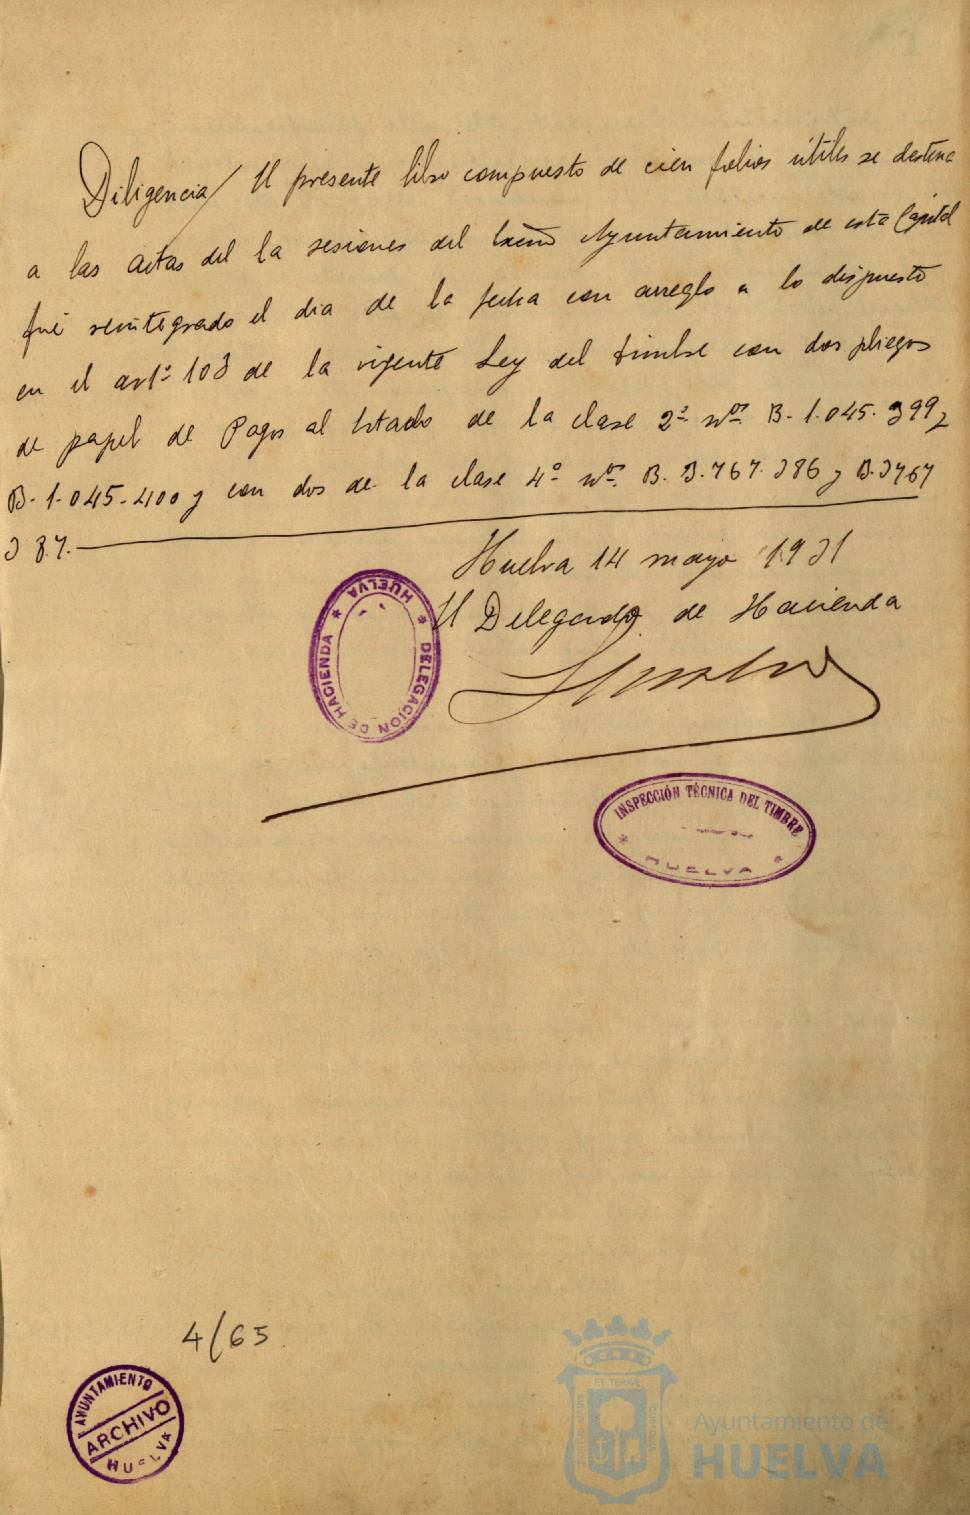 Diligencia/ El presente libro compuesto de cien folios útiles se destina
a las actas del la sesiones del Excmo Ayuntamiento de esta Capital
fué reintegrado el dia de la fecha con arreglo a lo dispuesto
en el artº 103 de la vigente Ley del timbre con dos pliegos
de papel de Pagos al Estado de la clase 2ª nos B-1.045.399 y
B-1.045-400 y con dos de la clase 4º nos. B. 3.767.386 y B.3767
387.
Huelva 14 mayo 1931
El Delegado de Hacienda
DELEGACION DE HACIENDA
* HUELVA *
INSPECCIÓN TÉCNICA DEL TIMBRE
* HUELVA *
4/65
AYUNTAMIENTO
ARCHIVO
HUELVA
Ayuntamiento de
HUELVA